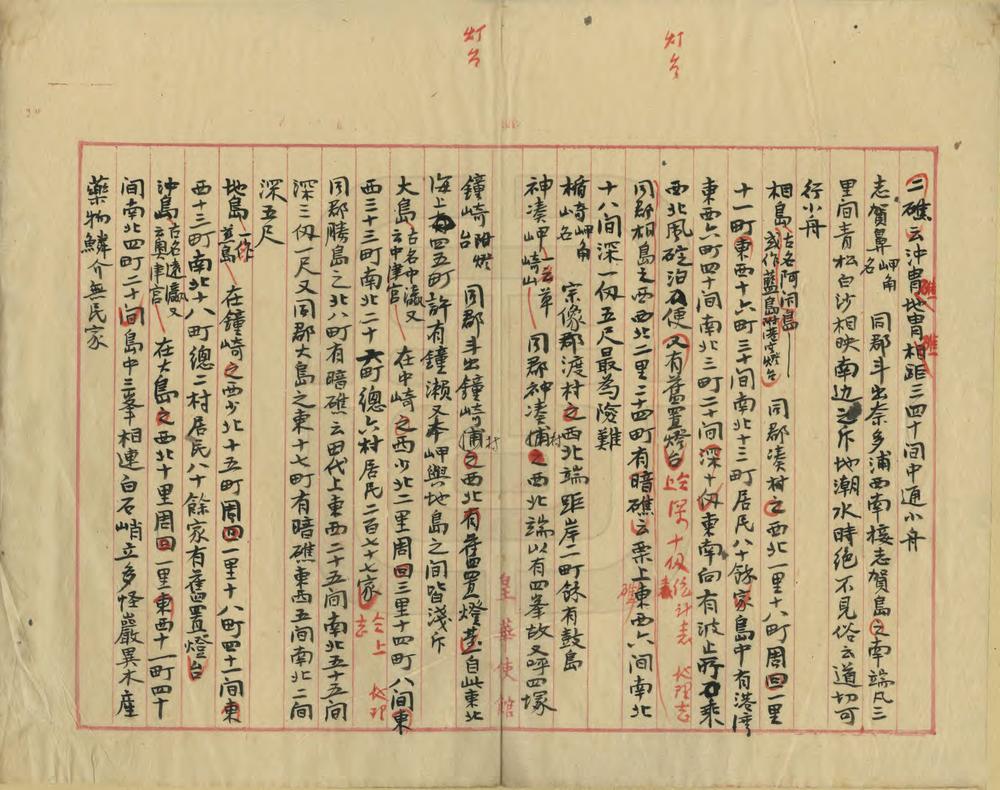 二礁云沖冑地冑相距三四十間中通小舟
志賀鼻岬角名 同郡斗出奈多浦西南接志賀島之南端凡三
里間青松白沙相映南边之斥地潮水時絶不見俗云道切可
行小舟
相島古名阿閉島或作藍島附港灣燈台 同郡湊村之西北一里十八町周回一里
十一町東西十六町三十間南北十三町居民八十餘家島中有港湾
東西六町四十間南北三町二十間深十仭東南向有波止所乃乘
西北風碇泊為便又有舊置燈台 仝深十仭統計表 地理志
同郡相島之西西北二里二十四町有暗礁云栗上東西六間南北
十八間深一仭五尺最為險難
楯崎岬角名 宗像郡渡村之西北端距岸二町餘有鼓島
神湊岬一云草崎山 同郡神湊浦村之西北端以有四峯故又呼四塚
鐘崎附燈台 同郡斗出鐘崎浦村之西北有舊置燈基自此東北
海上四五町許有鐘瀬又本岬與地島之間皆淺斥
大島古名中瀛又云中津宮 在中崎之西少北二里周回三里十四町八間東
西三十三町南北二十六町總六村居民二百七十七家 仝上 地理志
同郡勝島之北八町有暗礁云田代上東西二十五间南北五十五间
深三仭一尺又同郡大島之東十七町有暗礁東西五间南北二间
深五尺
地島一作葚島 在鐘崎之西少北十五町周回一里十八町四十一间東
西十三町南北十八町總二村居民八十餘家有舊置燈台
沖島古名遠瀛又云奧津宮 在大島之西北十里周回一里東西十一町四十
間南北四町二十间島中三峯相連白石峭立多怪巖異木産
藥物鱗介無民家
灯台
灯台
皇華使館